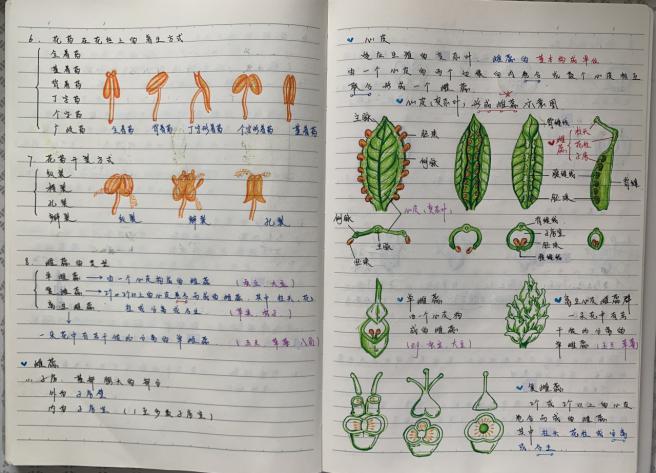 6. 花药在花丝上的着生方式
全着药
基着药
背着药
丁字药
个字药
广歧药
全着药 背着药 丁字形着药 个字形着药 基着药
7. 花药开裂方式
纵裂
横裂
孔裂
瓣裂
纵裂 瓣裂 孔裂
8. 雌蕊的类型
单雌蕊 → 由一个心皮构成的雌蕊
复雌蕊 → 2个2个以上的心皮
离生雌蕊
一朵花中有若干彼此分离的单雌蕊
雌蕊
子房: 基部膨大的部分
外为子房壁
内为子房室 (1至多数子房室)
心皮
雌蕊的基本构成单位
由一个心皮的两个边缘向内愈合或数个心皮相互
联合形成一个雌蕊
心皮(变态叶)形成雌蕊示意图
主脉
胚珠
侧脉
背缝线
腹缝线
胚珠
雌蕊
柱头
花柱
子房
背缝
心皮(变态叶)
侧脉
主脉
胚珠
背缝线
子房室
胚珠
腹缝线
单雌蕊
由一个心皮构
成的雌蕊
离生心皮雌蕊群
一朵花中有若
干彼此分离的
单雌蕊
复雌蕊
2个或2个以上的心皮
愈合而成的雌蕊
其中柱头 花柱或分离
或合生